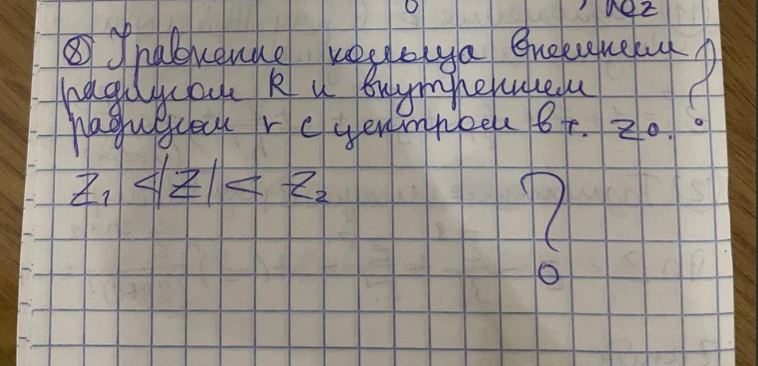 ⑧ Уравнение кольца внешнем
радиусом R и внутрением
радиусом r с центром в т. z0. ?
Z₁ <|Z| < Z₂ ?